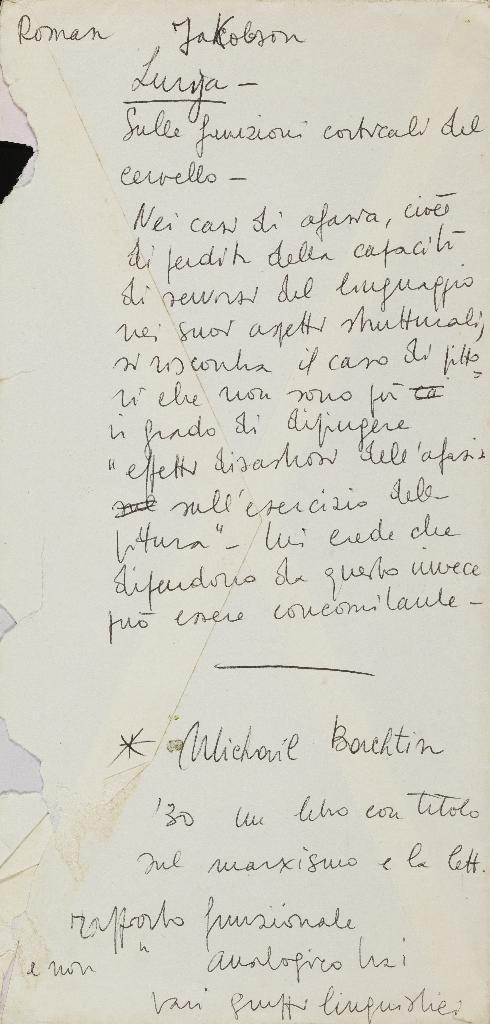 Roman Jakobson
Lurija —
Sulle funzioni corticali del
cervello —
Nei casi di afasia, cioè
di perdita della capacità
di servirsi del linguaggio
nei suoi aspetti strutturali,
si riscontra il caso di pitto-
ri che non sono più
in grado di dipingere
"effetti disastrosi dell'afasia
sull'esercizio della
pittura" — lui crede che
dipendono da questo invece
può essere concomitante —
* Michail Bachtin
'30 un libro con titolo
sul marxismo e la lett.
rapporto funzionale
e non " analogico tra i
vari gruppi linguistici